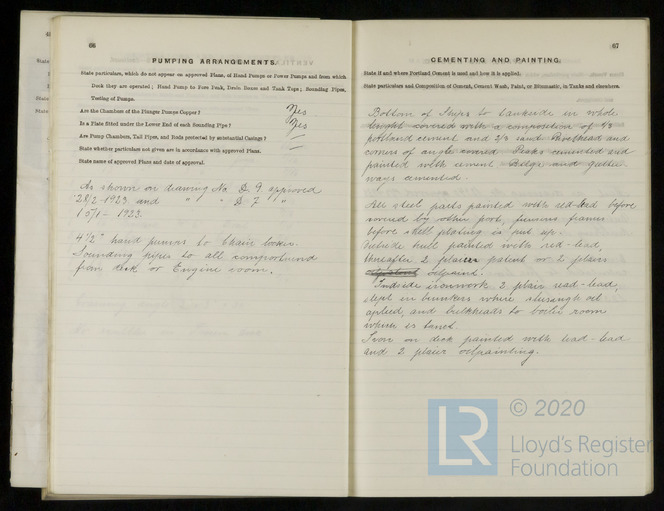 66
PUMPING ARRANGEMENTS.
State particulars, which do not appear on approved Plans, of Hand Pumps or Power Pumps and from which
Deck they are operated; Hand Pump to Fore Peak, Drain Boxes and Tank Tops; Sounding Pipes,
Testing of Pumps.
Are the Chambers of the Plunger Pumps Copper? Yes
Is a Plate fitted under the Lower End of each Sounding Pipe? Yes
Are Pump Chambers, Tail Pipes, and Rods protected by substantial Casings? —
State whether particulars not given are in accordance with approved Plans. —
State name of approved Plans and date of approval.
As shown on drawing No D. 9 approved
28/2-1923 and " " D 7 "
10/1-1923.
4½" hand pumps to Chain locker.
Sounding pipes to all compartment
from deck or Engine room.
67
CEMENTING AND PAINTING.
State if and where Portland Cement is used and how it is applied:
State particulars and Composition of Cement, Cement Wash, Paint, or Bitumastic, in Tanks and elsewhere.
Bottom of Ships to tankside in whole
lenght covered with a composition of 1/3
portland cement and 2/3 sand
corners of angle covered Peaks cemented and
painted with cement Bilge and gutter
ways cemented.
All steel parts painted with red-lead before
covered by other part, frames
before shell plating is put up.
Outside hull painted with red-lead,
thereafter 2 patent or 2 plain
oilpaint.
Indside ironwork 2 plain read-lead,
exept in bunkers where oil
aplied, and bulkheads to boiler room
where is
Iron on deck painted with lead-lead
and 2 oilpainting.
LR
© 2020
Lloyd's Register
Foundation